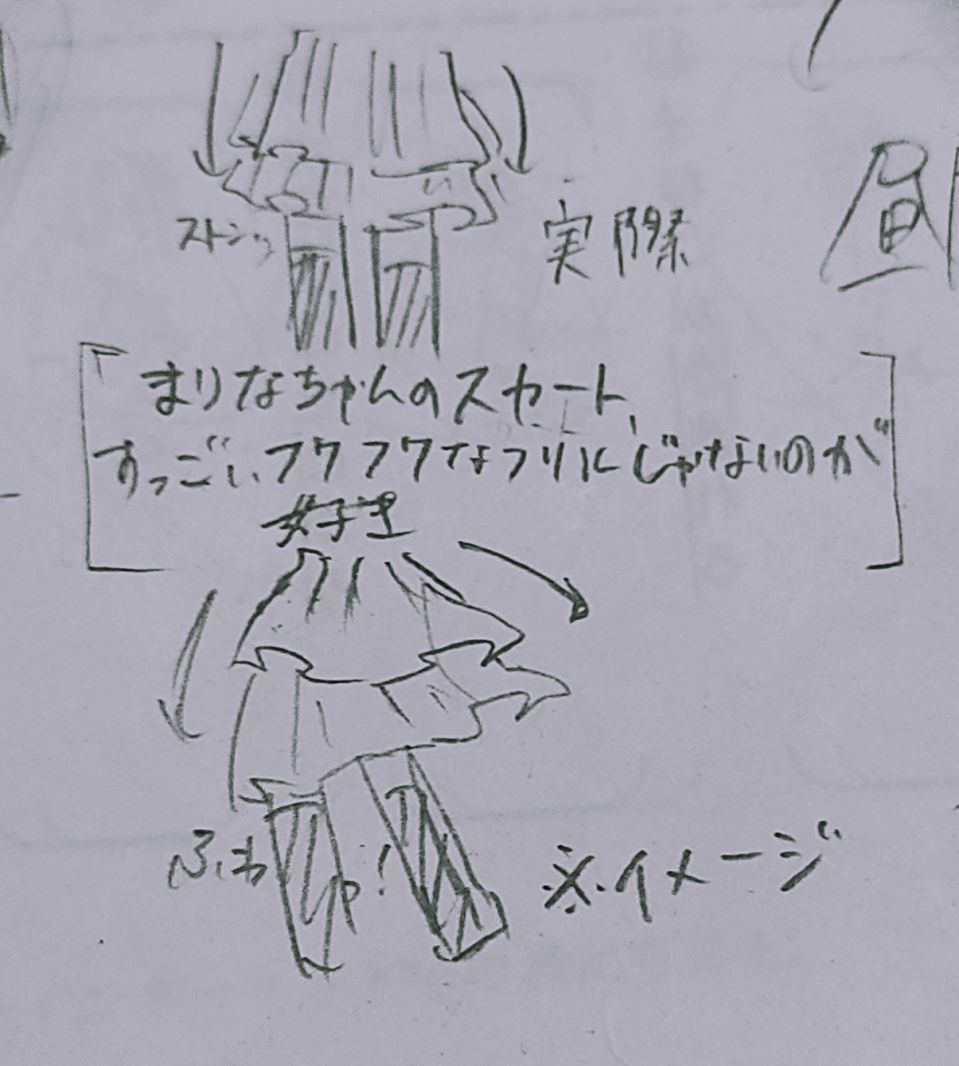 ストンッ
実際
まりなちゃんのスカート、
すっごいフワフワなフリにじゃないのが
好き
ふわっ!
※イメージ